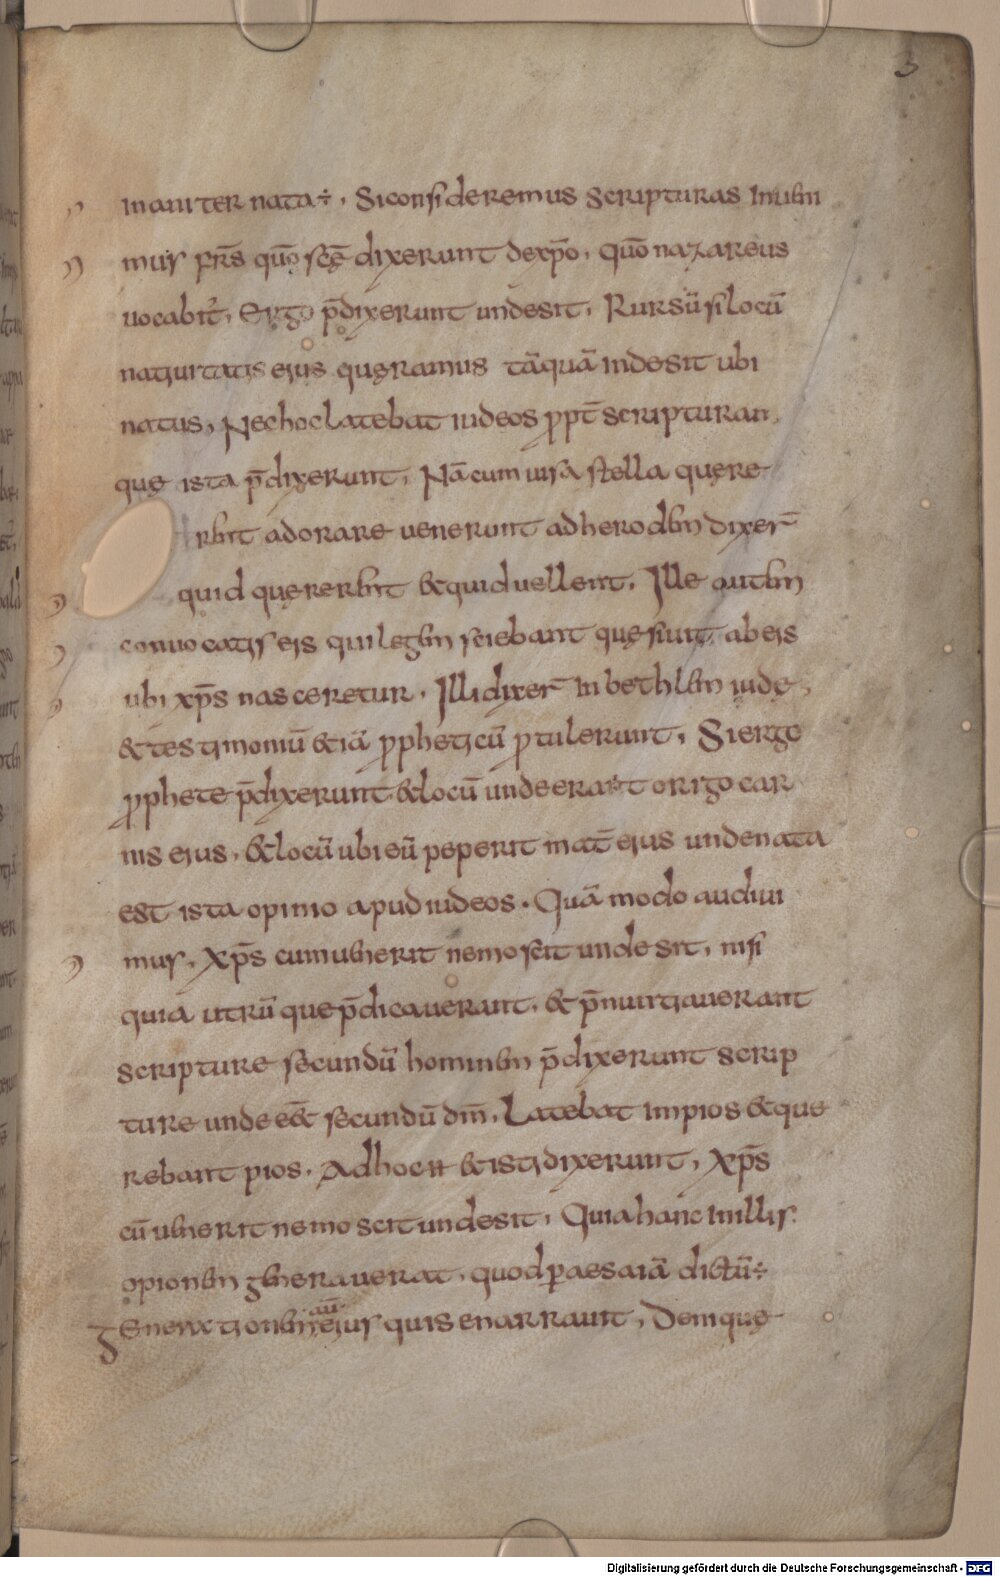 3
inaniter nata÷, Siconsideremus scripturas Inuen
mus frēs quō scē dixerunt dexp̄o, quō nazareus
uocabit̄, Ergo p̄dixerunt undesit, Rursū silocū
natiuitatis eius queramus tāquā indesit ubi
natus, Nechoclatebat iudeos ppt̄ scripturan,
que ista p̄dixerunt, Nācum uisa stella quęre
rent adorare uenerunt adheroden dixer̄
quid quererent &quid uellent. Ille autem
conuocatis eis qui legem sciebant quęsiuit, abeis
ubi xp̄s nasceretur, Illi dixer̄ In bethlem iudę,
&testimoniū &iā ppheticū ptulerunt, Si ergo
pphete p̄dixerunt &locū unde erat origo car
nis eius, &locū ubi eū peperit mat̄ eius unde nata
est ista opinio apud iudeos. Quā modo audiui
mus, Xp̄s cum uenerit nemo scit unde sit, nisi
quia utrū que p̄dicauerant, & p̄nuntiauerant
scripture secundū hominem p̄dixerunt scrip
ture unde ee& secundū dm̄, Latebat Impios &que
rebant pios. Adhoc H &isti dixerunt, Xp̄s
cū uenerit nemo scit undesit, Quiahanc Inillis
opionem generauerat, quod paesaiā dictū÷
aū
Generationem eius quis enarrauit, Denique
Digitalisierung gefördert durch die Deutsche Forschungsgemeinschaft - DFG